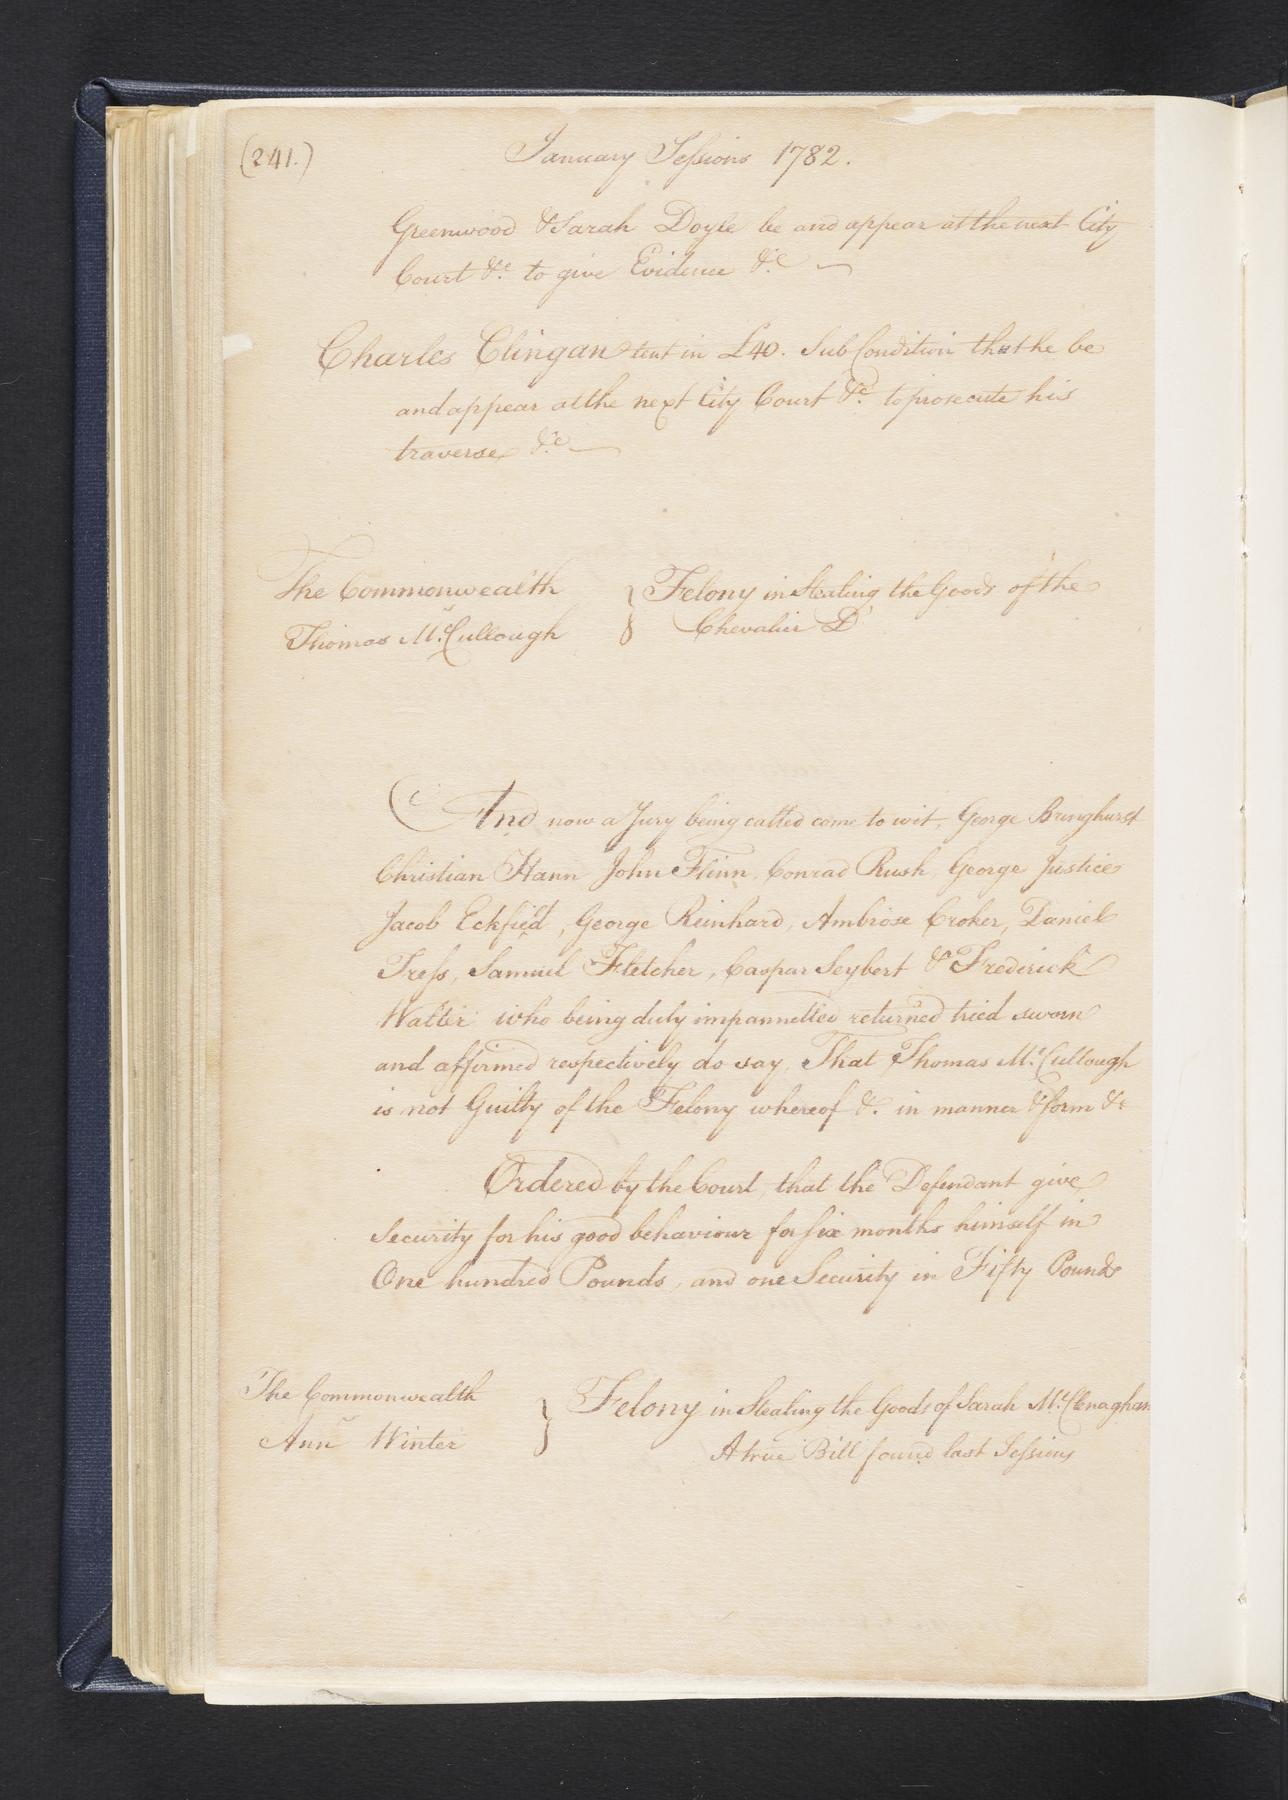 (241.)
January Sessions 1782.
Greenwood & Sarah Doyle be and appear at the next City
Court &c. to give Evidence &c
Charles Clingan tent in £40. Sub Condition that he be
and appear at the next City Court &c. to prosecute his
traverse &c
The Commonwealth
v
Thomas Mc.Cullough
Felony in Stealing the Goods of the
Chevalier D'
And now a Jury being called come to wit, George Bringhurst
Christian Hann John Flinn, Conrad Rush, George Justice
Jacob Eckfield, George Reinhard, Ambrose Croker, Daniel
Tress, Samuel Fletcher, Caspar Seybert & Frederick
Walter who being duly impannelled returned tried sworn
and affirmed respectively do say, That Thomas Mc.Cullough
is not Guilty of the Felony whereof &. in manner & form &c
Ordered by the Court, that the Defendant give
Security for his good behaviour for six months himself in
One hundred Pounds, and one Security in Fifty Pounds
The Commonwealth
v
Ann Winter
Felony in Stealing the Goods of Sarah Mc.Clenaghan
A true Bill found last Sessions